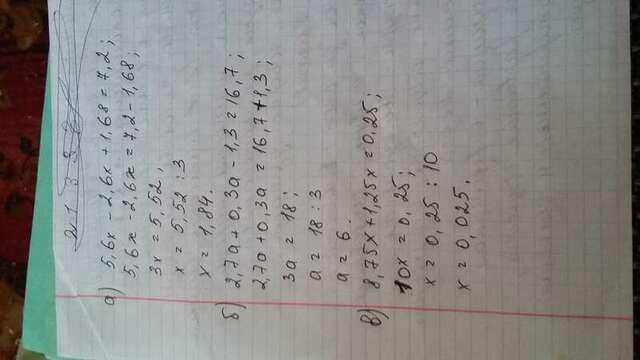 а) 5,6x - 2,6x + 1,68 = 7,2;
5,6x - 2,6x = 7,2 - 1,68;
3x = 5,52;
x = 5,52 : 3
x = 1,84.
б) 2,7a + 0,3a - 1,3 = 16,7;
2,7a + 0,3a = 16,7 + 1,3;
3a = 18;
a = 18 : 3
a = 6.
в) 8,75x + 1,25x = 0,25;
10x = 0,25;
x = 0,25 : 10
x = 0,025.